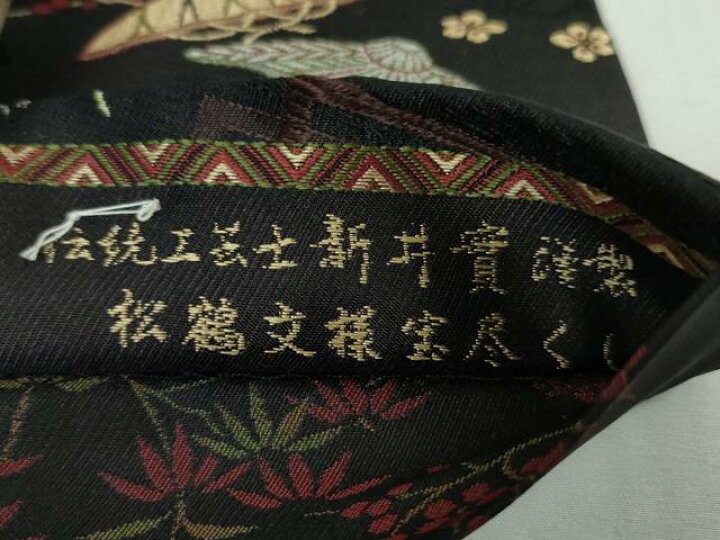 伝統工芸士新井實謹製
松鶴文様宝尽くし